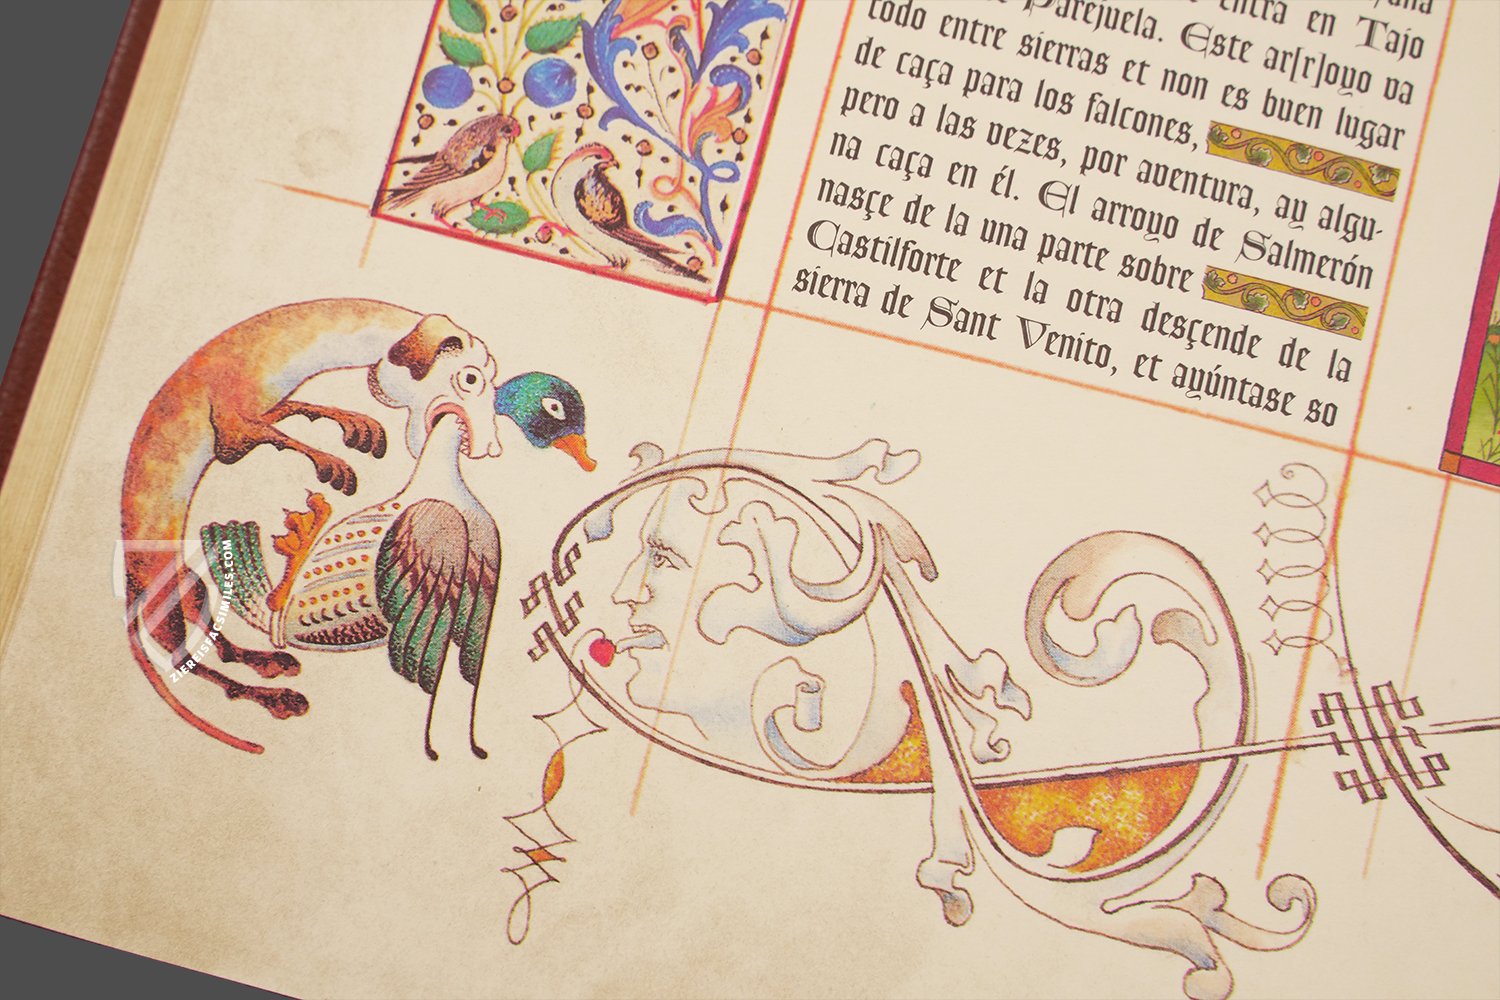 entra en Tajo
Parejuela. Este ar[r]oyo va
todo entre sierras et non es buen lugar
de caça para los falcones,
pero a las vezes, por aventura, ay algu-
na caça en él. El arroyo de Salmerón
nasçe de la una parte sobre
Castilforte et la otra desçende de la
sierra de Sant Venito, et ayúntase so
ZIEREISFACSIMILES.COM